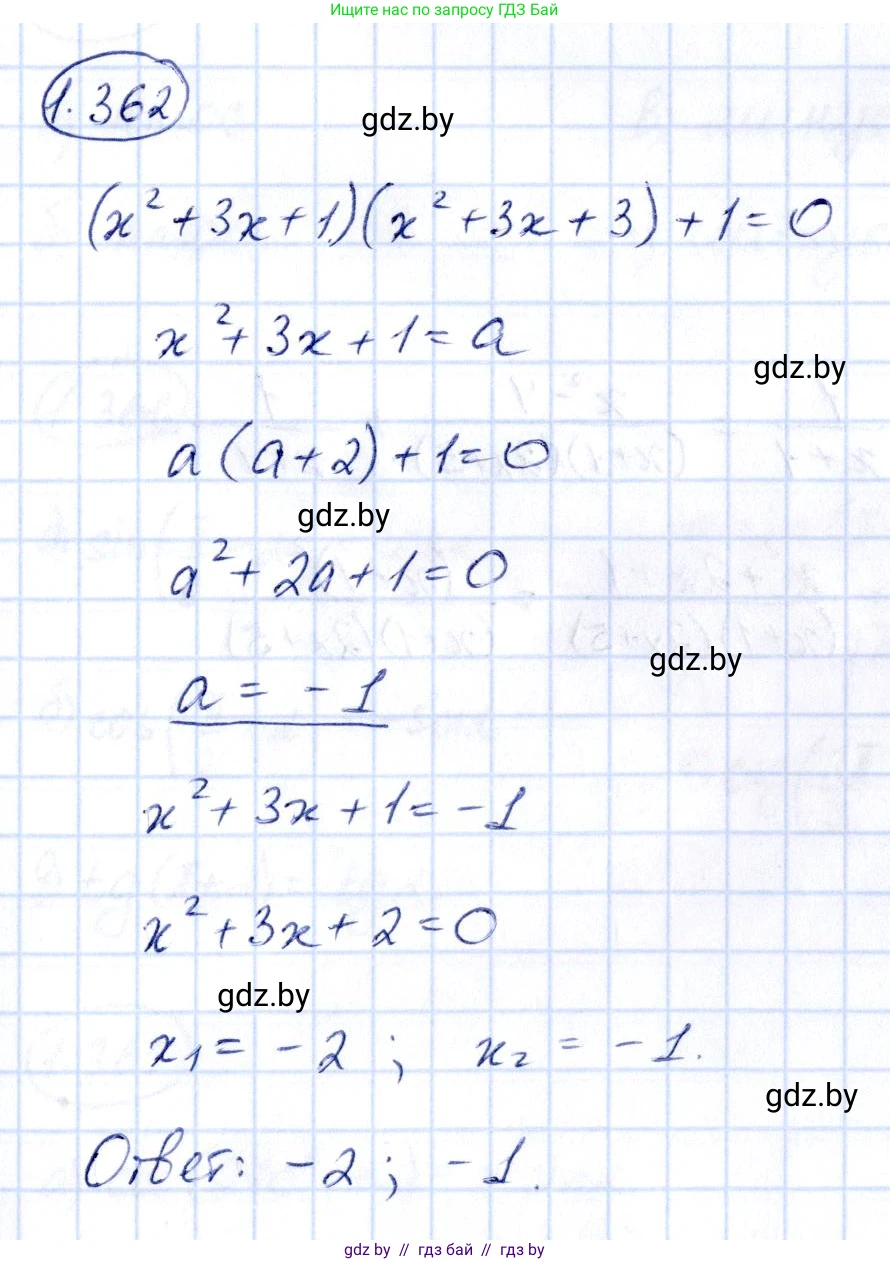 Ищите нас по запросу ГДЗ Бай
1.362
gdz.by
(x² + 3x + 1)(x² + 3x + 3) + 1 = 0
x² + 3x + 1 = a
gdz.by
a (a + 2) + 1 = 0
gdz.by
a² + 2a + 1 = 0
gdz.by
a = - 1
x² + 3x + 1 = - 1
x² + 3x + 2 = 0
gdz.by
x₁ = - 2 ; x₂ = - 1.
gdz.by
Ответ: - 2 ; - 1.
gdz.by // гдз бай // гдз by